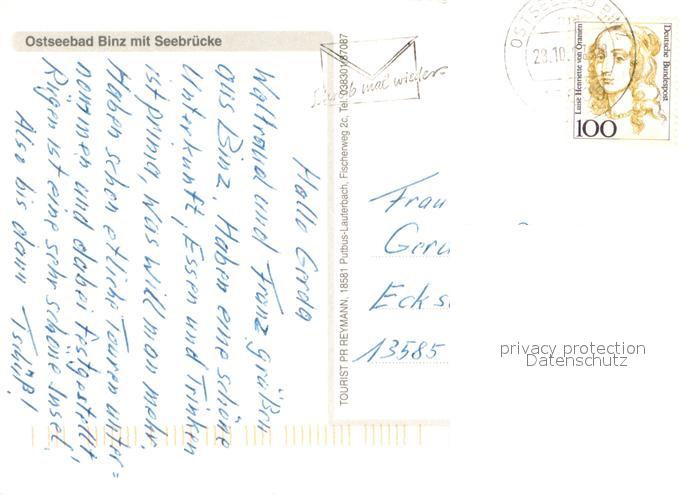 Ostseebad Binz mit Seebrücke
Hallo Gerda
Waltraud und Franz grüßen
aus Binz. Haben eine schöne
Unterkunft, Essen und Trinken
ist prima, was will man mehr.
Haben schon etliche Touren unter=
nommen und dabei festgestellt,
Rügen ist eine sehr schöne Insel.
Also bis dann Tschüß!
TOURIST PR REYMANN, 18581 Putbus-Lauterbach, Fischerweg 2c, Tel. 03830167087
mal wieder
OSTSEEBAD BINZ
28.10.
Luise Henriette von Oranien
Deutsche Bundespost
100
Frau
Ger
Ecks
13585
privacy protection
Datenschutz